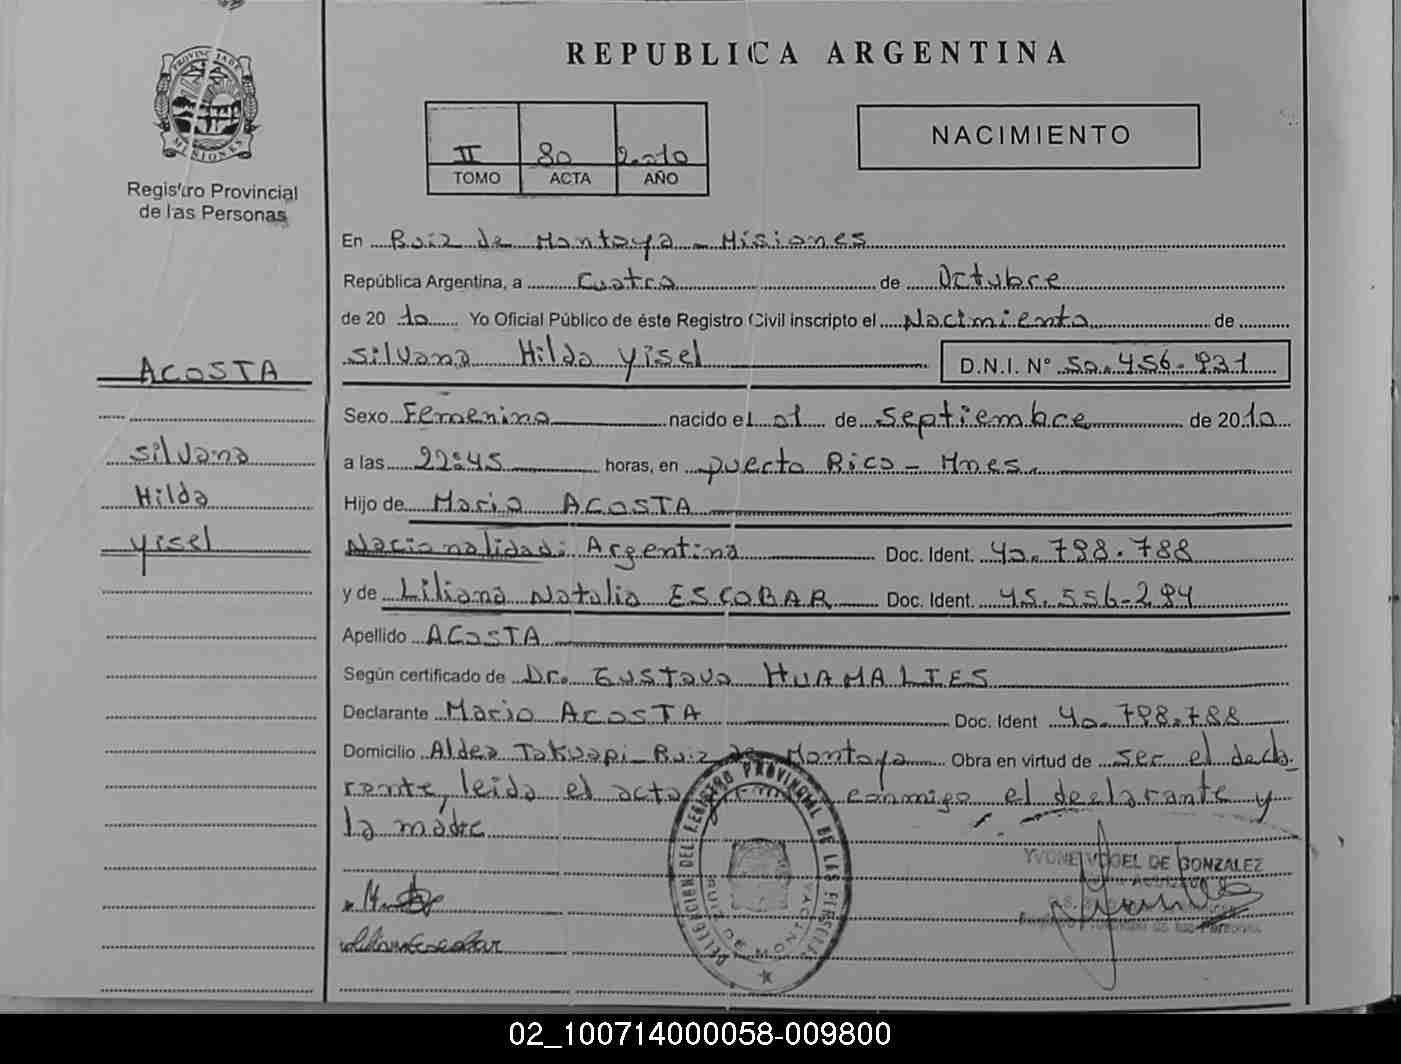 REPUBLICA ARGENTINA
PROVINCIA DE MISIONES
Registro Provincial
de las Personas
II 80 2010
TOMO ACTA AÑO
NACIMIENTO
En Ruiz de Montoya - Misiones
República Argentina, a Cuatro de Octubre
de 2010 Yo Oficial Público de éste Registro Civil inscripto el Nacimiento de
Silvana Hilda Yisel D.N.I. Nº 50.456-931
ACOSTA
Silvana
Hilda
Yisel
Sexo Femenino nacido el 01 de Septiembre de 2010
a las 22:45 horas, en Puerto Rico - Mnes.
Hijo de Mario ACOSTA
Nacionalidad: Argentina Doc. Ident. 40.798.788
y de Liliana Natalia ESCOBAR Doc. Ident. 45.556-294
Apellido ACOSTA
Según certificado de Dr. Gustavo HUAMALIES
Declarante Mario ACOSTA Doc. Ident 40.798.788
Domicilio Aldea Takuapi Ruiz de Montoya Obra en virtud de ser el decla
rante, leida el acta conmigo el declarante y
la madre
DELEGACION DEL REGISTRO PROVINCIAL DE LAS PERSONAS
RUIZ DE MONTOYA
YVONE VOGEL DE GONZALEZ
Liliana Escobar
02_100714000058-009800